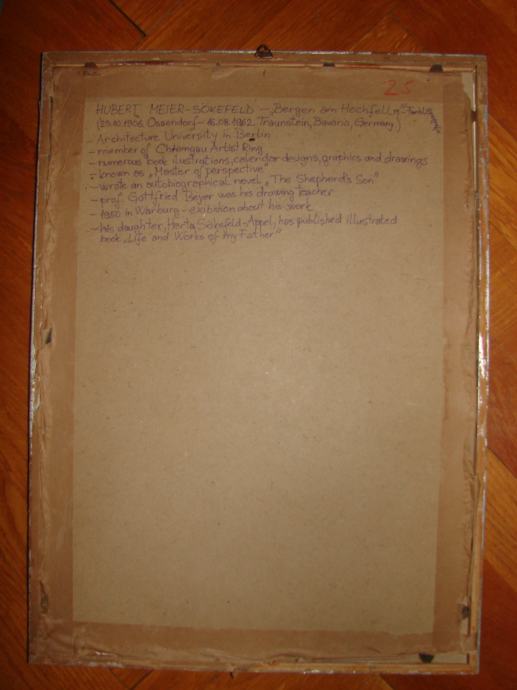 25
HUBERT MEIER-SÖKEFELD - „Bergen am Hochfelln"-
(29.10.1906 Ossendorf - 16.08.1962 Traunstein, Bavaria, Germany)
- Architecture University in Berlin
- member of Chiemgau Artist Ring
- numerous book ilustrations, calendar designs, graphics and drawings
- known as „Master of perspective"
- wrote an autobiographical novel „The Shepherd's Son"
- prof. Gottfried Beyer was his drawing teacher
- 1980 in Warburg - exibition about his work
- his daughter, Herta Sökefeld-Appel, has published illustrated
book „Life and Works of My Father"